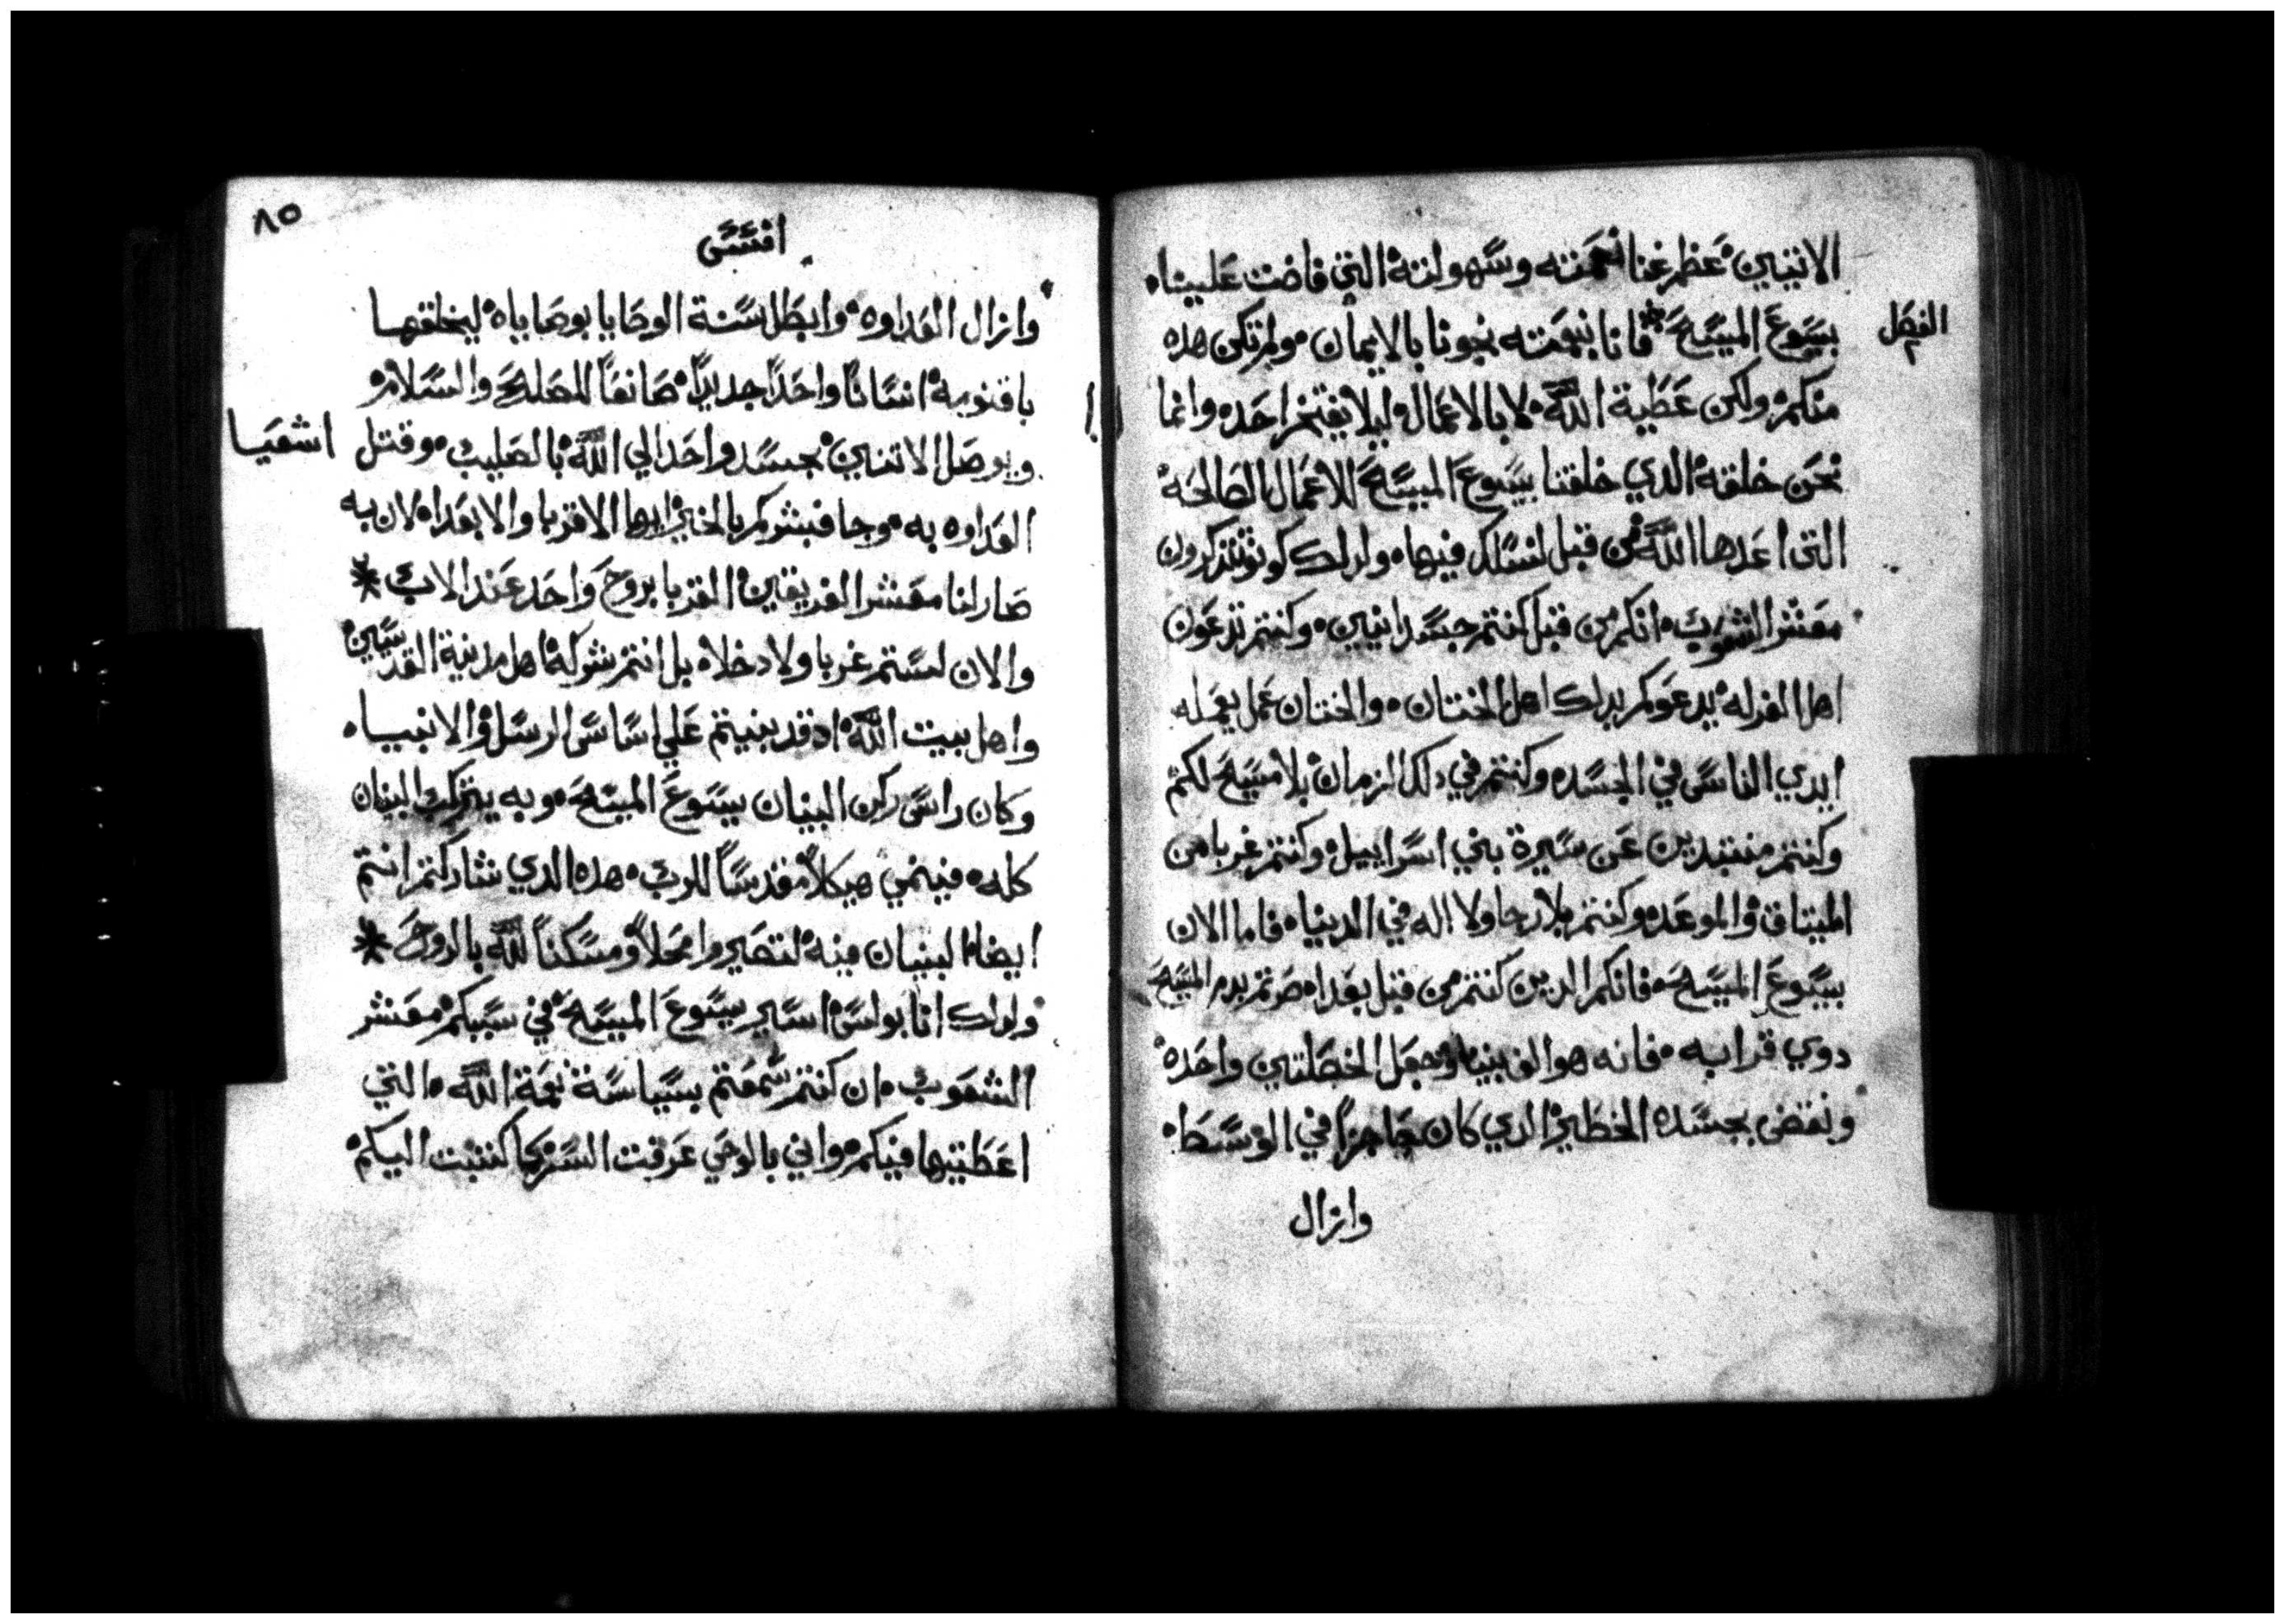 الاتيين عظم غنا نعمته وسهولته التي فاضت علينا
بيسوع المسيح فانا بنعمته نجونا بالايمان ولم تكن هده
الفصل
منكم ولكن عطية الله لا بالاعمال ليلا يفتخر احد وانما
نحن خلقه الدي خلقنا بيسوع المسيح للاعمال الصالحه
التي اعدها الله من قبل لنسلك فيها ولدلك كونو تتدكرون
معشر الشعوب انكم من قبل كنتم جسدانيين وكنتم تدعون
اهل الغرله يدعوكم بدلك اهل الختان والختان عمل يعمله
ايدي الناس في الجسد وكنتم في دلك الزمان بلا مسيح لكم
وكنتم منتبدين عن سيرة بني اسراييل وكنتم غربا من
الميتاق والموعد وكنتم بلا رجا ولا اله في الدنيا فاما الان
بيسوع المسيح فانكم الدين كنتم من قبل بعدا صرتم بدم المسيح
دوي قرابه فانه هو الف بيننا وجعل الخصلتين واحده
ونقض بجسده الحظير الدي كان حاجزا في الوسط
وازال
٨٥
افسس
وازال العداوه وابطل سنة الوصايا بوصاياه ليخلقهما
باقنومه انسانا واحدا جديدا صانعا للصلح والسلام
ويوصل الاتنين بجسد واحد الي الله بالصليب وقتل
اشعيا
العداوه به وجا فبشركم بالخير ايها الاقربا والابعدا لان به
صار لنا معشر الفريقين القربا بروح واحد عند الاب *
والان لستم غربا ولا دخلا بل انتم شركه اهل مدينة القديسين
واهل بيت الله اد قد بنيتم علي اساس الرسل والانبيا
وكان راس ركن البنيان يسوع المسيح وبه يتركب البنيان
كله فينمي هيكلا مقدسا للرب هده الدي شاركتم انتم
ايضا البنيان فيه لتصيروا محلا ومسكنا لله بالروح *
ولدلك انا بولس اسير يسوع المسيح في سببكم معشر
الشعوب ان كنتم سمعتم بسياسة نعمة الله التي
اعطيتها فيكم واني بالوحي عرفت السر كما كتبت اليكم